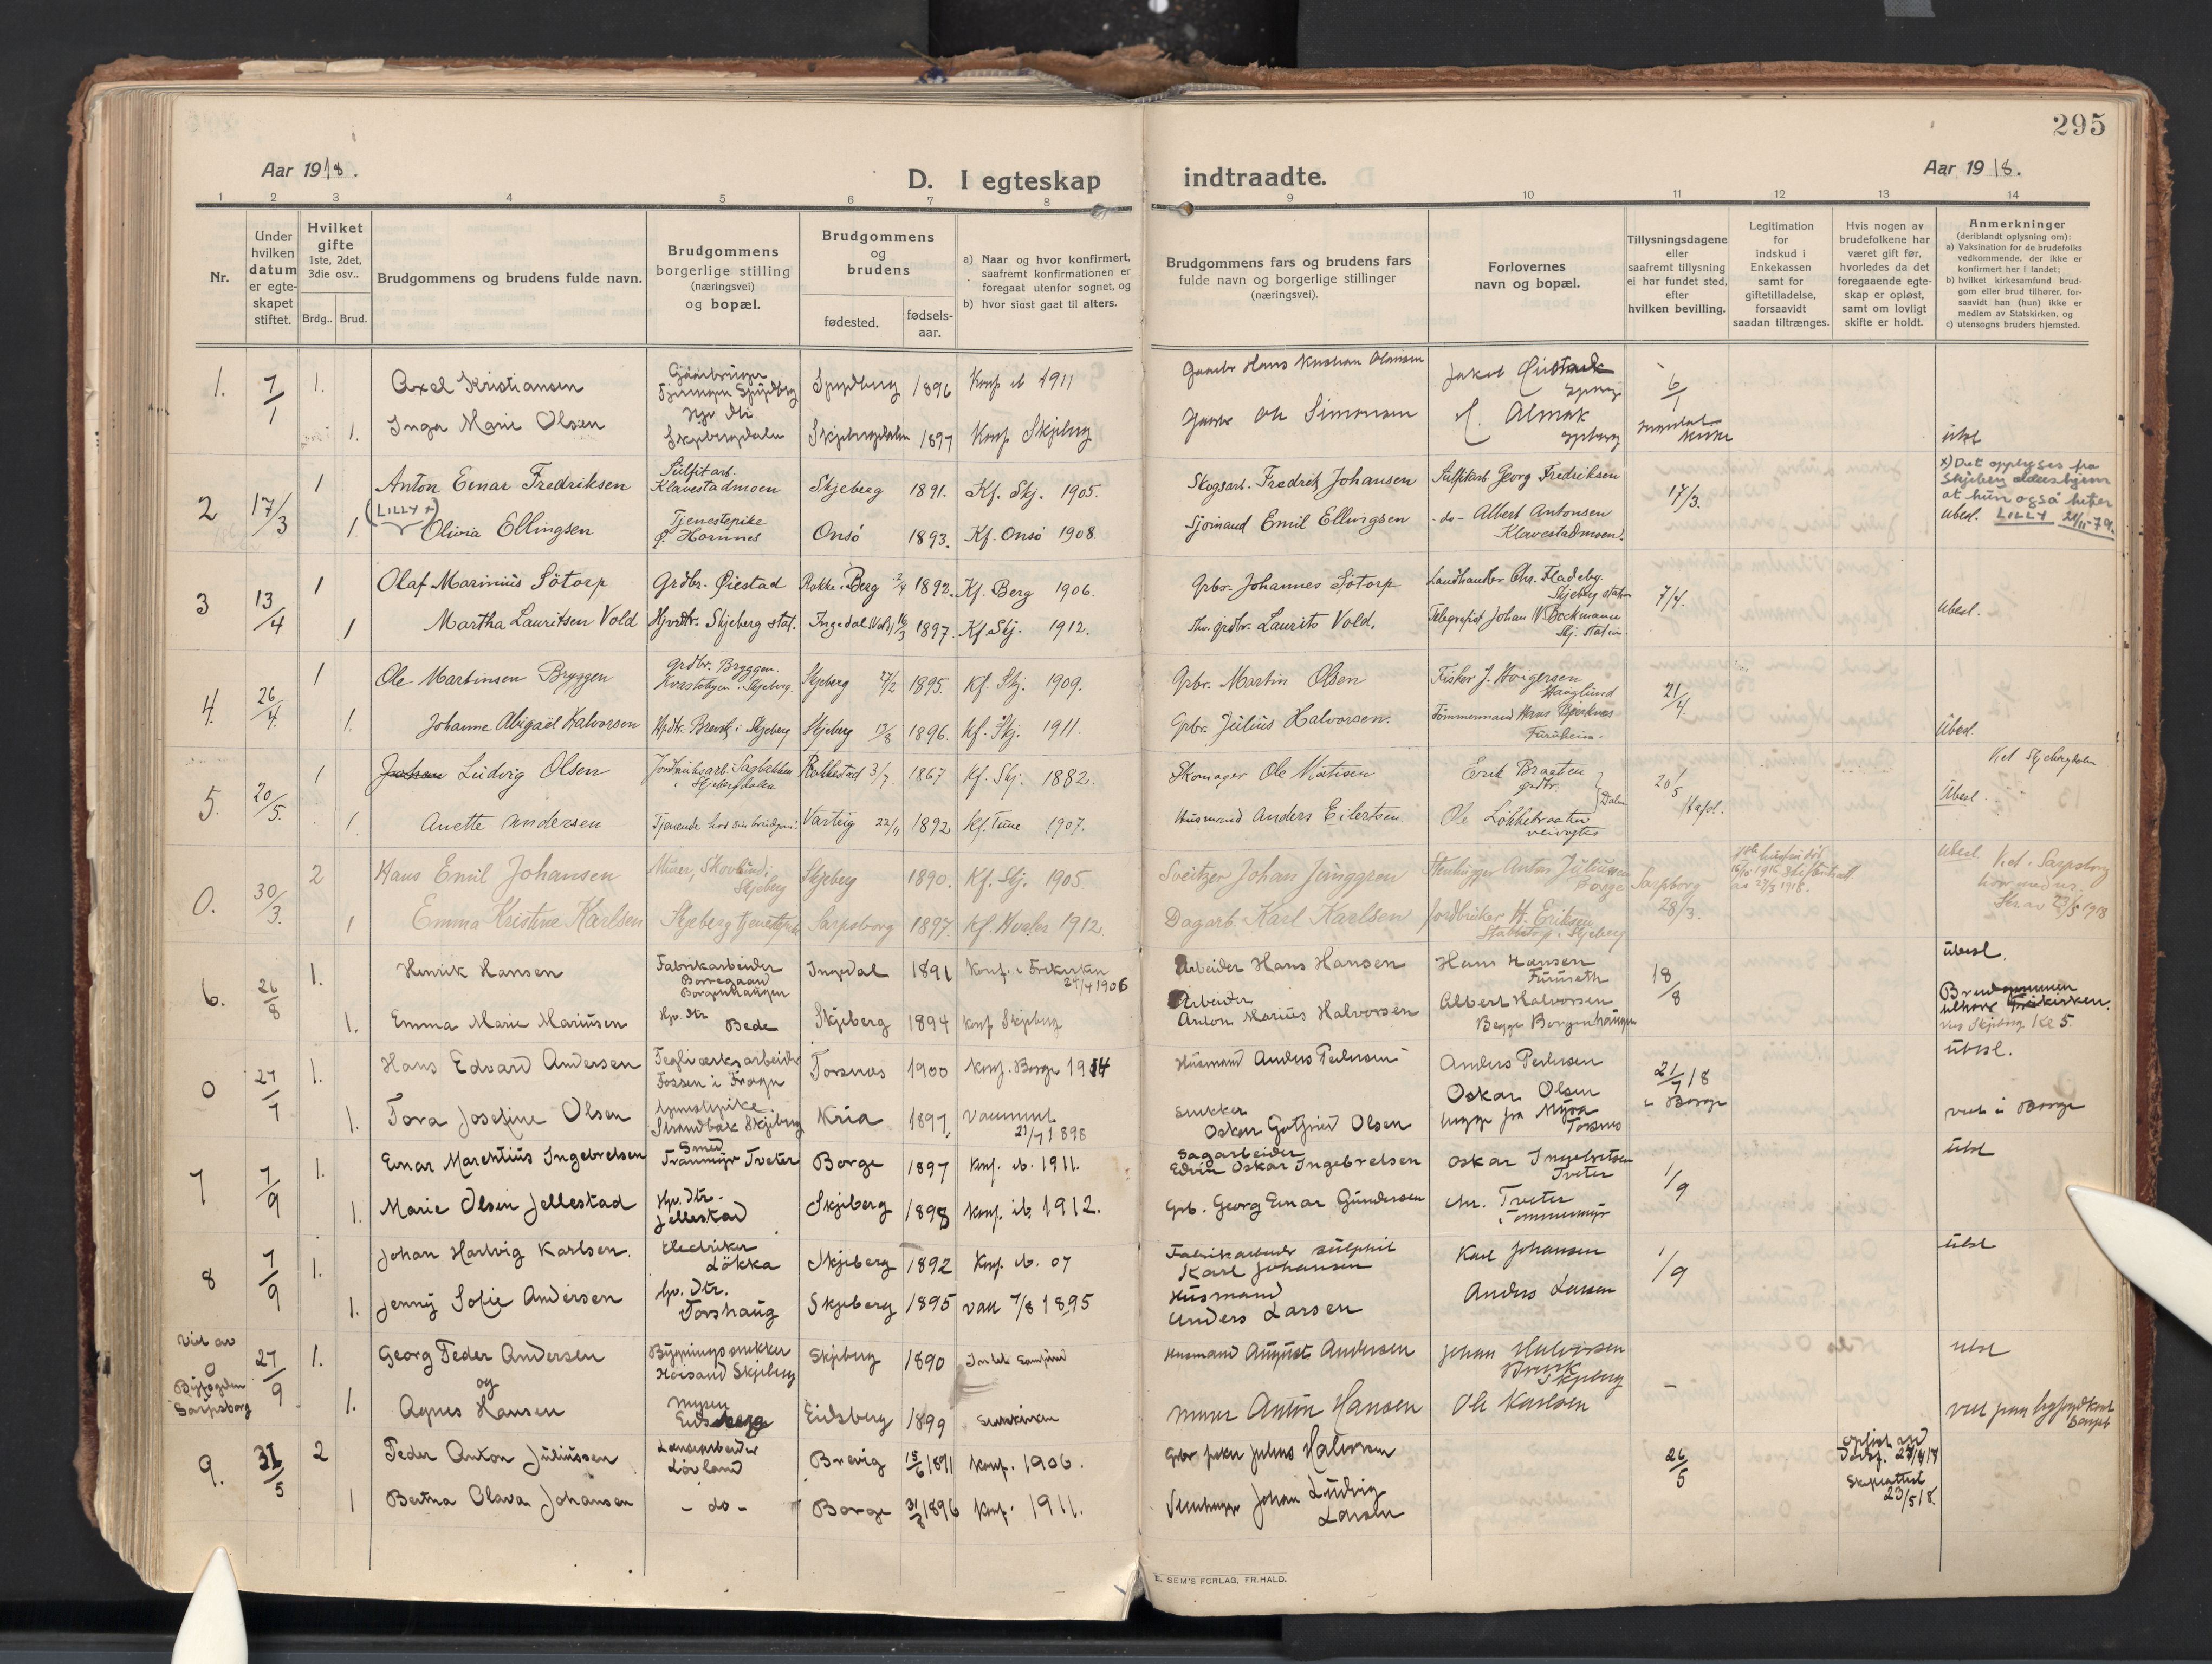 295
Aar 1918.
D. I egteskap indtraadte.
Aar 1918.
1 2 3 4 5 6 7 8 9 10 11 12 13 14
Nr.
Under hvilken datum er egte-skapet stiftet.
Hvilket gifte 1ste, 2det, 3die osv..
Brdg.. Brud.
Brudgommens og brudens fulde navn.
Brudgommens borgerlige stilling (næringsvei) og bopæl.
Brudgommens og brudens
fødested. fødsels-aar.
a) Naar og hvor konfirmert, saafremt konfirmationen er foregaat utenfor sognet, og
b) hvor sidst gaat til alters.
Brudgommens fars og brudens fars fulde navn og borgerlige stillinger (næringsvei).
Forlovernes navn og bopæl.
Tillysningsdagene eller saafremt tillysning ei har fundet sted, efter hvilken bevilling.
Legitimation for indskud i Enkekassen samt for giftetilladelse, forsaavidt saadan tiltrænges.
Hvis nogen av brudefolkene har været gift før, hvorledes da det foregaaende egte-skap er opløst, samt om lovligt skifte er holdt.
Anmerkninger (deriblandt oplysning om): a) Vaksination for de brudefolks vedkommende, der ikke er konfirmert her i landet; b) hvilket kirkesamfund brud-gom eller brud tilhører, for-saavidt han (hun) ikke er medlem av Statskirken, og c) utensogns bruders hjemsted.
1. 7/1 1. Axel Kristiansen Gaardbruger Spydberg 1896 Konf ib 1911 Gaardbr Hans Kristian Olausen 6/1
1. Inga Marie Olsen Skjebergdalen Skjebergdalen 1897 Konf Skjeberg Ole Simonsen Almak ubesl
2 17/3 1 Anton Einar Fredriksen Sulfitarb. Klavestadmoen Skjeberg 1891. Kf. Skj. 1905. Skogsarb. Fredrik Johansen Sulfitarb Georg Fredriksen 17/3. x) Det opplyses fra Skjeberg aldershjem at hun også heter LILLY 21/11-79.
(LILLY x)
1 Olivia Ellingsen Tjenestepike Ø. Hornnes Onsö 1893. Kf. Onsö 1908. Sjömand Emil Ellingsen - do - Albert Antonsen Klavestadmoen. Ubesl.
3 13/4 1 Olaf Marinius Sötorp Grdbr. Øiestad Rokke i Berg 2/4 1892. Kf. Berg 1906. Gbr. Johannes Sötorp Landhandler Chr. Fladeby. Skjeberg station 7/4.
1 Martha Lauritsen Vold Hjvrdtr. Skjeberg stat. Ingedal (Vold) 16/3 1897. Kf. Skj. 1912. grdbr. Laurits Vold. Telegrafist Johan W. Bockmann Skj. station. Ubesl.
4. 26/4. 1 Ole Martinsen Bryggen grdbr. Bryggen. Kvastebyen i Skjeberg. Skjeberg 27/2 1895. Kf. Skj. 1909. Gbr. Martin Olsen Fisker J. Hauglund 21/4.
1. Johanne Abigael Halvorsen Hpdtr. Brevik i Skjeberg Skjeberg 13/8 1896. Kf. Skj. 1911. Gbr. Julius Halvorsen. Tömmermand Hans Furuheim. Ubesl.
5. 20/5. 1 Johan Ludvig Olsen Jordbruksarb. Sagbakken i Skjebergdalen Rakkestad 3/7. 1867 Kf. Skj. 1882. Skomager Ole Matisen Erik Braaten grdbr. 20/5 Viet Skjebergdalen
1. Anette Andersen Tjenende hos sin brudgom. Varteig 22/11 1892 Kf. Tune 1907. Husmand Anders Eilertsen. Ole Lökkebraaten veivogter Dalen Hafsl. Ubesl.
0. 30/3. 2 Hans Emil Johansen Murer, Skovlund i Skjeberg Skjeberg 1890. Kf. Skj. 1905. Sveitzer Johan Junggren Stenhugger Anton Juliussen Borge Sarpsborg 28/3. ubesl. Viet i Sarpsborg
1 Emma Kristine Karlsen Skjeberg tjenestepike Sarpsborg 1897. Kf. Hvaler 1912. Dagarb. Karl Karlsen Jordbruker H. Eriksen i Skjeberg Skr av 23/5 1918
6. 26/8 1. Henrik Hansen Fabrikarbeider Borregaard Borgenhaugen Ingedal 1891 Konf. i Frikirken 24/4 1906 Arbeider Hans Hansen Hans Hansen Furuseth 18/8 ubesl.
1. Emma Marie Mariussen Hp. dtr Bede Skjeberg 1894 Konf Skjeberg Arbeider Anton Marius Halvorsen Albert Halvorsen Begge Borgenhaugen Brudgommen tilhörer Frikirken. Vies Skjeberg Kl 5.
0 27/7 1. Hans Edvard Andersen Teglverksarbeider Fossen i Torsnes 1900 Konf. Borge 1914 Husmand Anders Pedersen Anders Pedersen 21/7 18 i Borge ubesl.
1. Tora Josefine Olsen tjenestepike Strandbak Skjeberg Kria 1897. Vaccineret 21/7 1898 Snekker Oskar Gotfried Olsen Oskar Olsen begge fra Myra Torsnes viet i Borge
7 7/9 1. Einar Marentius Ingebretsen Smed Tranmyr Tveter Borge 1897 Konf. ib. 1911. Sagarbeider Edvin Oskar Ingebretsen Oskar Ingebretsen Tveter 1/9 ubesl
1. Marie Olsen Jellestad Hp. dtr. Jellestad Skjeberg 1898 Konf. ib. 1912. Grb. Georg Einar Gundersen Chr. Tveter Tommermyr
8 7/9 1. Johan Hartvig Karlsen. Electriker Lökka Skjeberg 1892 Konf. ib. 07 Fabrikarbeider sulphit Karl Johansen Karl Johansen 1/9 ubesl
1. Jenny Sofie Andersen hp. dtr. Torshaug Skjeberg 1895 vacc 7/8 1895 Husmand Anders Larsen Anders Larsen
Viet av 0 Byfogden Sarpsborg 27/9 1. Georg Peder Andersen Bygningssnekker Höisand Skjeberg Skjeberg 1890 Husmand August Andersen Johan Halvorsen Brevik Skjeberg ubesl
og
1. Agnes Hansen Mysen Eidsberg Eidsberg 1899 Statskirken Murer Anton Hansen Ole Karlsen - viet paa byfogdkont Sarpsb
9. 31/5 2 Peder Anton Juliussen Landarbeider Lövland Brevig 15/6 1891 Konf. 1906. Julius Halvorsen 26/5 Skifteattest 23/5 18.
1 Bertha Olava Johansen - do - Borge 31/8 1896 Konf. 1911. Stenhugger Johan Ludvig Larsen
E. SEM'S FORLAG, FR.HALD.